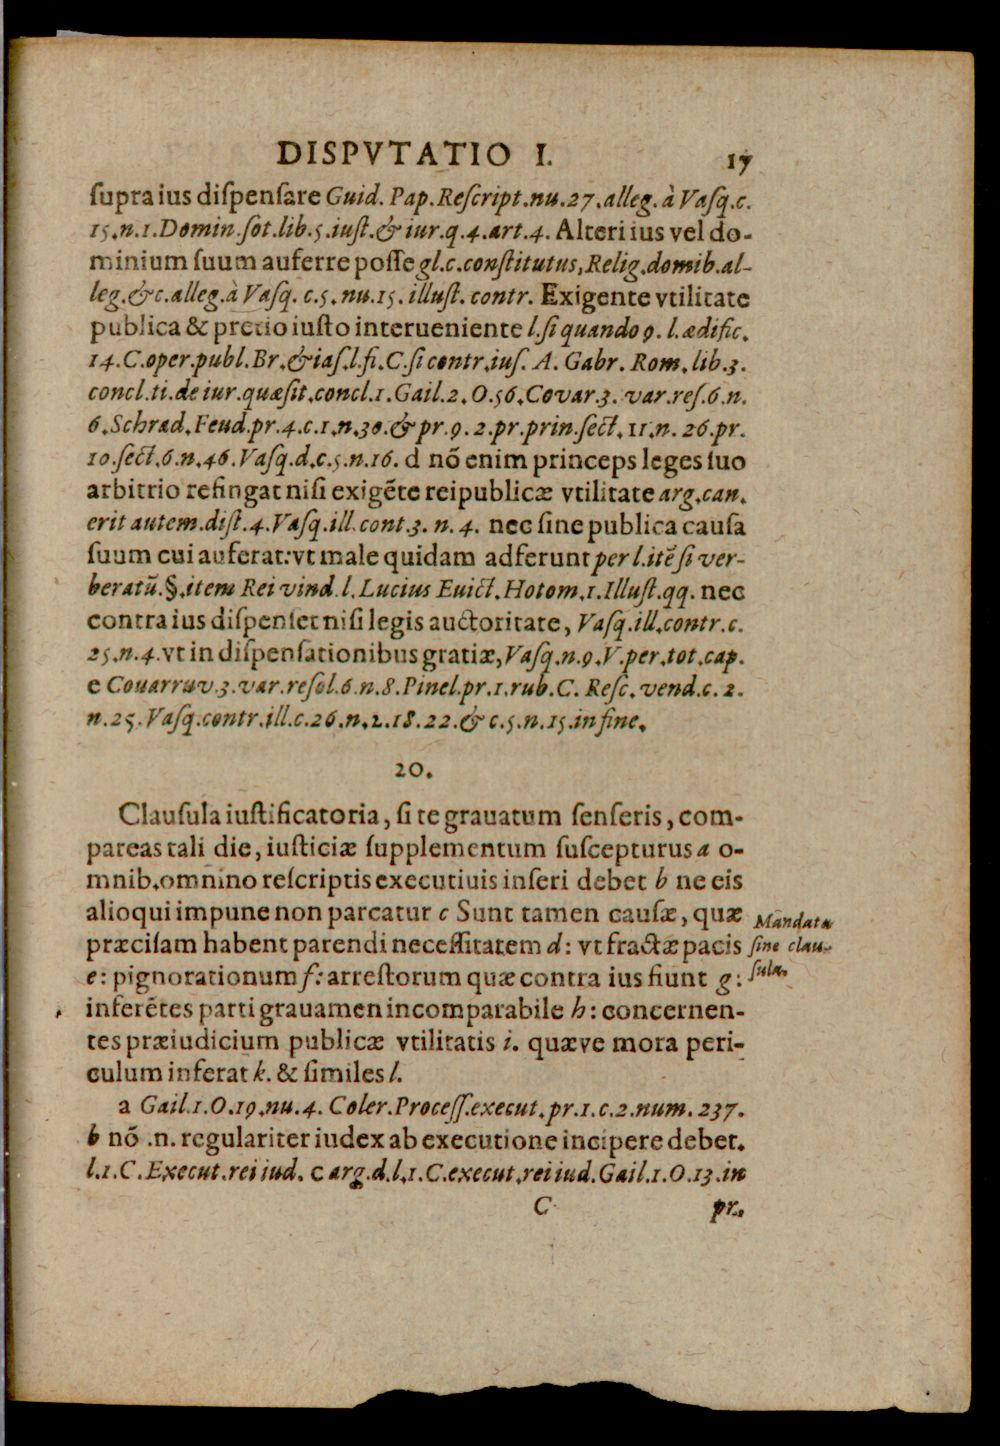 DISPVTATIO I. 17
ſupra ius diſpenſare Guid. Pap. Reſcript. nu. 27. alleg. à Vaſq. c.
15. n. 1. Domin. ſot. lib. 5. iuſt. & iur. q. 4. art. 4. Alteri ius vel do-
minium ſuum auferre poſſe gl. c. conſtitutus, Relig. domib. al-
leg. &c. alleg. à Vaſq. c. 5. nu. 15. illuſt. contr. Exigente vtilitate
publica & precio iuſto interueniente l. ſi quando 9. l. ædific.
14. C. oper. publ. Br. & iaſ. l. fi. C. ſi contr. iuſ. A. Gabr. Rom. lib. 3.
concl. ti. de iur. quæſit. concl. 1. Gail. 2. O. 56. Covar. 3. var. reſ. 6. n.
6. Schrad. Feud. pr. 4. c. 1. n. 30. & pr. 9. 2. pr. prin. ſect. 11. n. 26. pr.
10. ſect. 6. n. 46. Vaſq. d. c. 5. n. 16. d nõ enim princeps leges ſuo
arbitrio refingat niſi exigẽte reipublicæ vtilitate arg. can.
erit autem. diſt. 4. Vaſq. ill. cont. 3. n. 4. nec ſine publica cauſa
ſuum cui auferat: vt male quidam adferunt per l. itẽ ſi ver-
beratũ. §. item Rei vind. l. Lucius Euict. Hotom. 1. Illuſt. qq. nec
contra ius diſpenſet niſi legis auctoritate, Vaſq. ill. contr. c.
25. n. 4. vt in diſpenſationibus gratiæ, Vaſq. n. 9. V. per. tot. cap.
e Couarruv. 3. var. reſol. 6. n. 8. Pinel. pr. 1. rub. C. Reſc. vend. c. 2.
n. 25. Vaſq. contr. ill. c. 26. n. 2. 18. 22. & c. 5. n. 15. in fine.
20.
Clauſula iuſtificatoria, ſi te grauatum ſenſeris, com-
pareas tali die, iuſticiæ ſupplementum ſuſcepturus a o-
mnib. omnino reſcriptis executiuis inſeri debet b ne eis
alioqui impune non parcatur c Sunt tamen cauſæ, quæ
præciſam habent parendi neceſſitatem d: vt fractæ pacis
e: pignorationum f: arreſtorum quæ contra ius fiunt g:
inferẽtes parti grauamen incomparabile h: concernen-
tes præiudicium publicæ vtilitatis i. quæve mora peri-
culum inferat k. & ſimiles l.
Mandata
ſine clau-
ſula.
a Gail. 1. O. 19. nu. 4. Coler. Proceſſ. execut. pr. 1. c. 2. num. 237.
b nõ .n. regulariter iudex ab executione incipere debet.
l. 1. C. Execut. rei iud. c arg. d. l. 1. C. execut. rei iud. Gail. 1. O. 13. in
C pr.